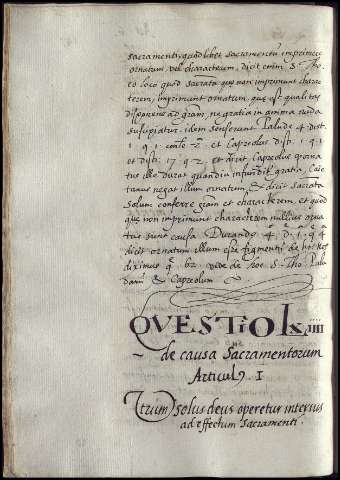 sacramenti, quodlibet sacramentū imprimere
ornatum, vel characterem, dicit enim S. Tho.
eo loco quod sacrata que non imprimunt charac
terem, imprimunt ornatum, que est qualitas
disponens ad gram, ne gratia in anima nuda
suscipiatur. idem senserunt Palude 4. dist.
1 q 1 et Capreolus dist. 1 q 1
et dist. 17 q 2 et dixit Capreolus q orna
tus ille durat quandiu infundit gratia, Caie
tanus negat illum ornatum, & dicit sacrata
solum conferre gram et characterem, et quod
que non imprimunt characterem nullius orna
tus sunt causa. Durand9 4. d. 1. q 4
dicit ornatum illum esse figmentū de hoc nos
diximus q. 62. vide de hoc S. Tho. Palu
danū & Capreolum
QVESTIO lxiiii
de causa Sacramentorum
Articul9 I
Vtrum solus deus operetur interius
ad effectum sacramenti.